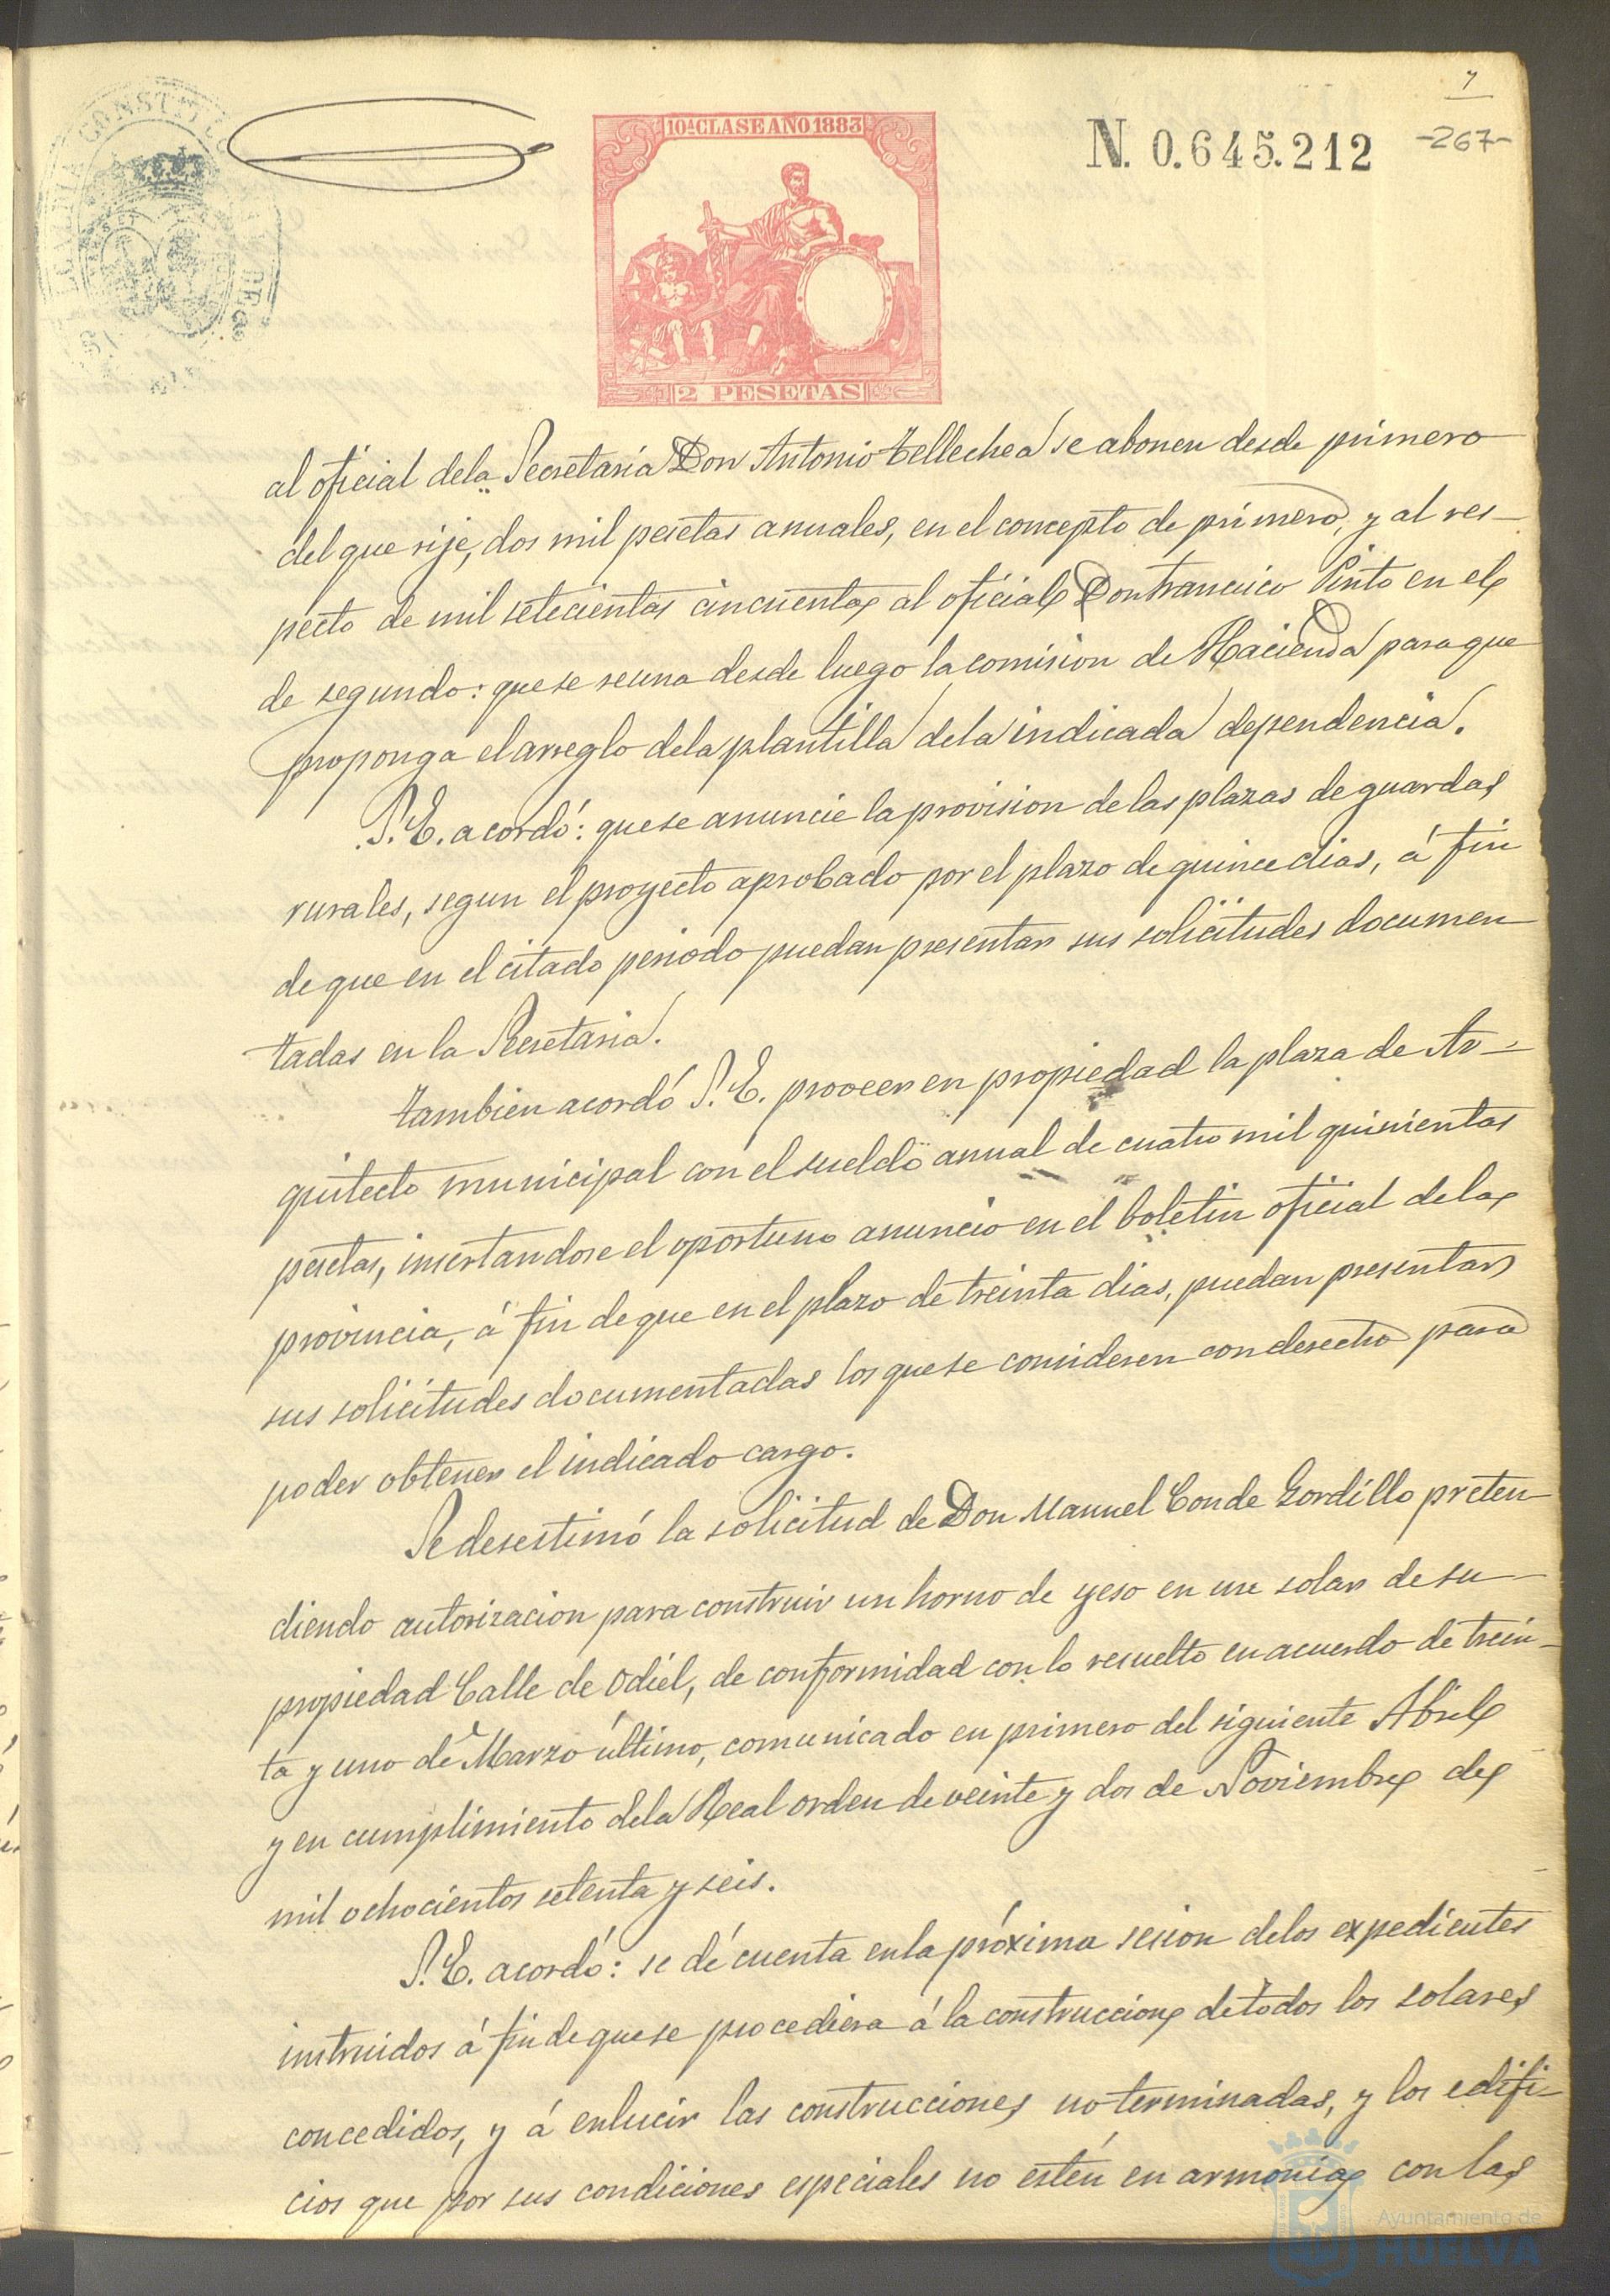 7
-267-
N. 0.645.212
10ª CLASE AÑO 1883
2 PESETAS
al oficial dela Secretaría Don Antonio Tellechea se abonen desde primero
del que rije, dos mil pesetas anuales, en el concepto de primero, y al res-
pecto de mil setecientas cincuenta al oficial Don Francisco Pinto en el
de segundo: que se reuna desde luego la comision de Hacienda para que
proponga el arreglo de la plantilla de la indicada dependencia.
S. E. acordó: que se anuncie la provision de las plazas de guardas
rurales, segun el proyecto aprobado por el plazo de quince dias, á fin
de que en el citado periodo puedan presentar sus solicitudes documen
tadas en la Secretaria.
Tambien acordó S. E. proveer en propiedad la plaza de Ar-
quitecto municipal con el sueldo anual de cuatro mil quinientas
pesetas, insertandose el oportuno anuncio en el boletin oficial de la
provincia, á fin de que en el plazo de treinta dias, puedan presentar
sus solicitudes documentadas los que se consideren con derecho para
poder obtener el indicado cargo.
Se desestimó la solicitud de Don Manuel Conde Gordillo preten-
diendo autorizacion para construir un horno de yeso en un solar de su
propiedad Calle de Odiel, de conformidad con lo resuelto en acuerdo de trein-
ta y uno de Marzo último, comunicado en primero del siguiente Abril
y en cumplimiento dela Real orden de veinte y dos de Noviembre de
mil ochocientos setenta y seis.
S. E. acordó: se dé cuenta en la próxima sesion delos expedientes
instruidos á fin de que se procediera á la construccion de todos los solares
concedidos, y á enlucir las construcciones no terminadas, y los edifi-
cios que por sus condiciones especiales no estén en armonia con las
Ayuntamiento de
HUELVA